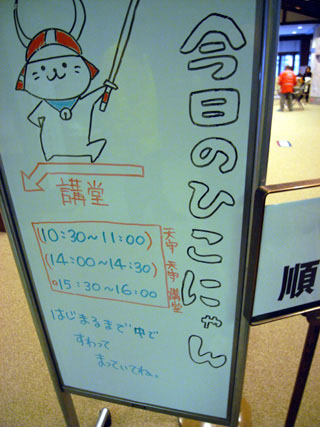 今日のひこにゃん
講堂
(10:30～11:00) 天守
(14:00～14:30) 天守
15:30～16:00 講堂
はじまるまで中で
すわって
まっていてね。
順